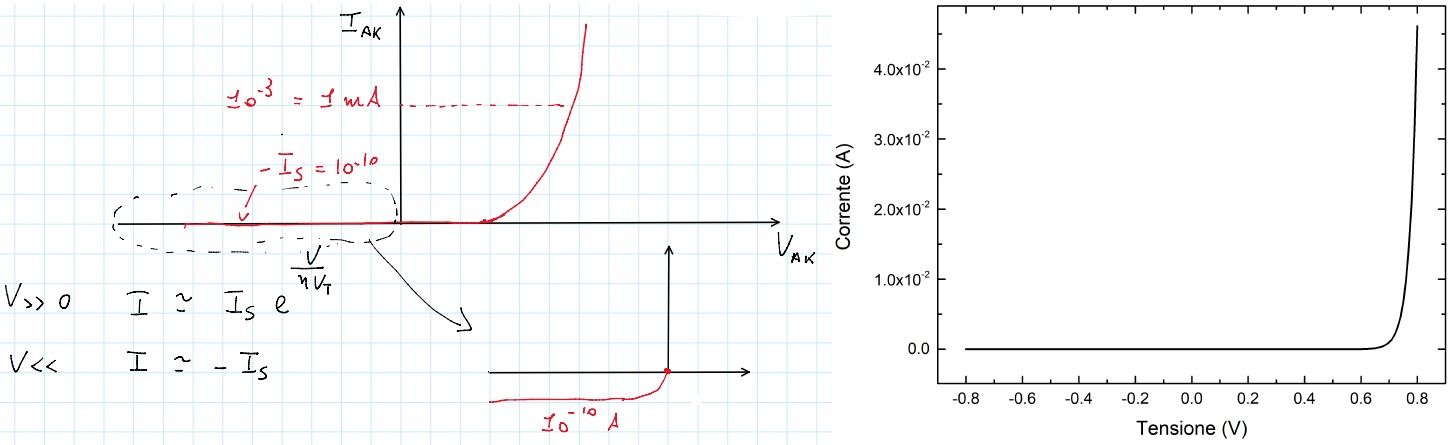 I_AK
10^-3 = 1 mA
- I_S = 10^-10
V_AK
V >> 0 I ≃ I_S e^(V/ηV_T)
V << I ≃ - I_S
10^-10 A
Corrente (A)
4.0x10^-2
3.0x10^-2
2.0x10^-2
1.0x10^-2
0.0
-0.8 -0.6 -0.4 -0.2 0.0 0.2 0.4 0.6 0.8
Tensione (V)